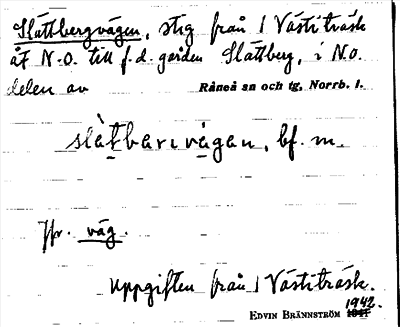 Slåttbergvägen, stig från 1 Västiträsk
åt N.O. till f.d. gården Slåttberg, i N.O.
delen av Råneå sn och tg, Norrb. l.
slåtbarıvägan, bf. m.
Jfr. väg.
Uppgiften från 1 Västiträsk.
1942.
EDVIN BRÄNNSTRÖM 1941